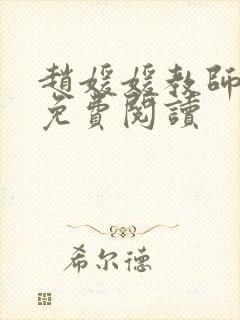 趙媛媛教師
免費閱讀
希尔德